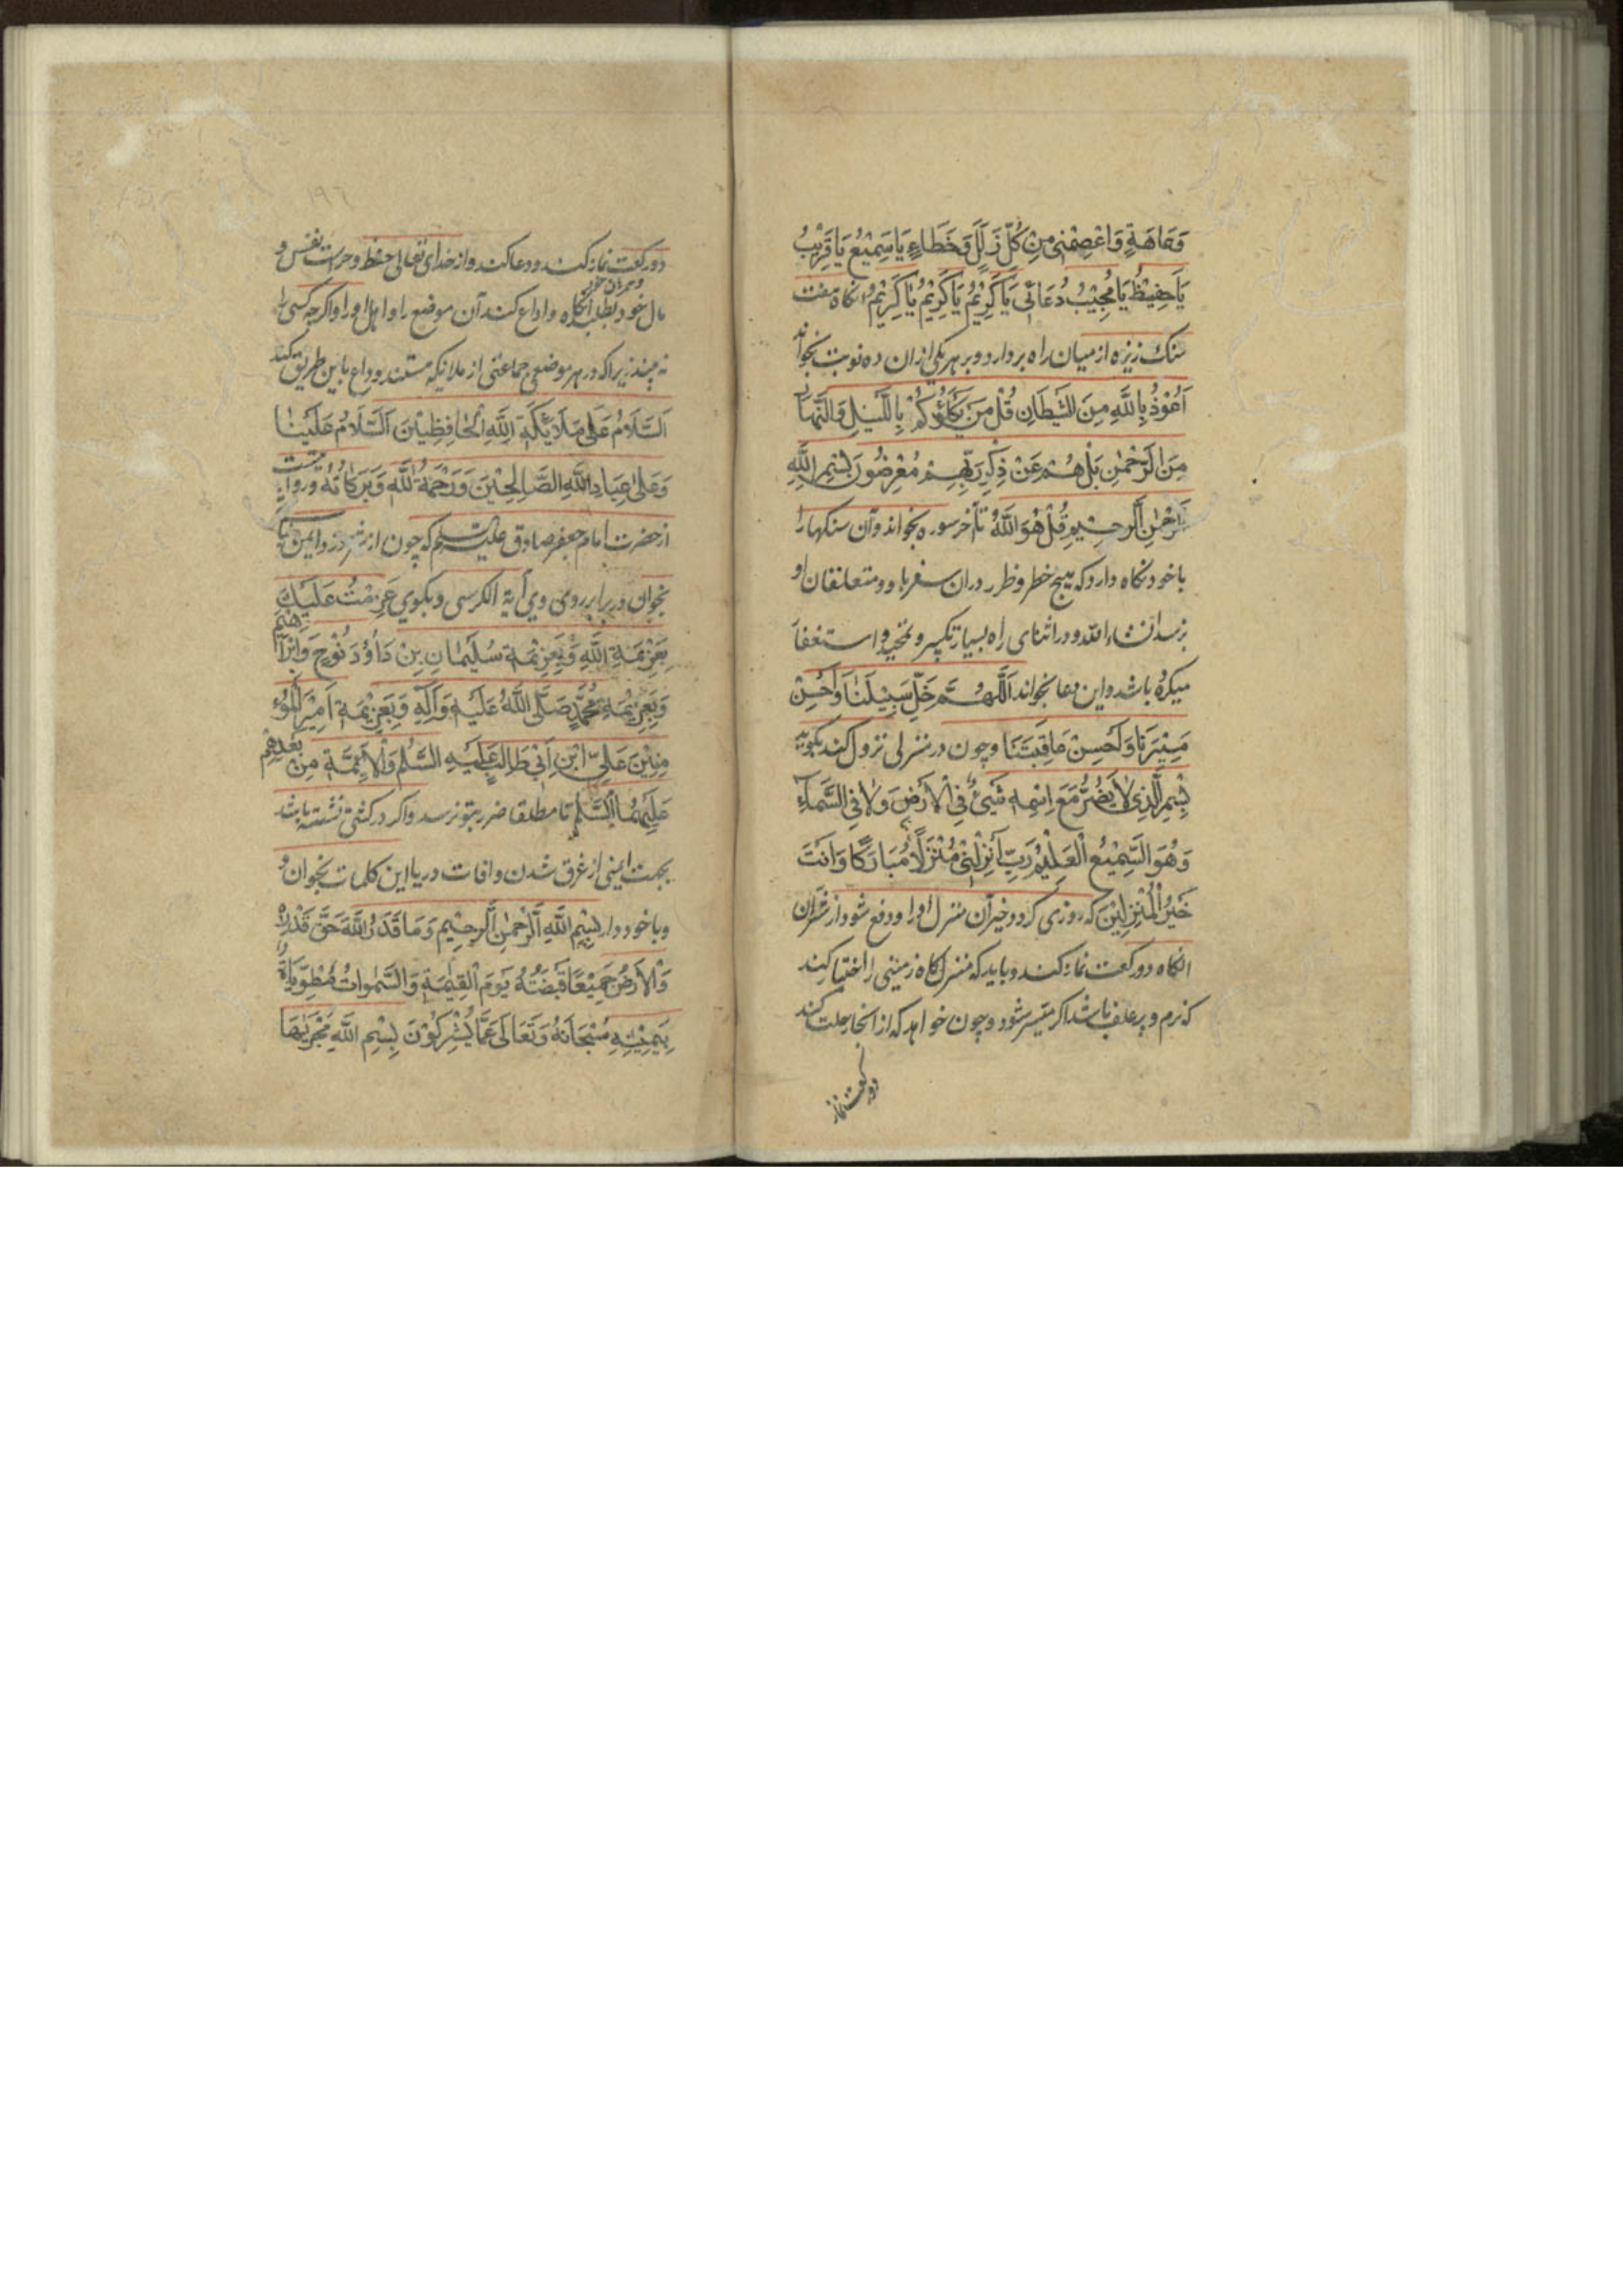 وَعَاهَةٍ وَاعْصِمْنِی مِنْ کُلِّ زَلَلٍ وَخَطَاءٍ یَا سَمِیْعُ یَا قَرِیْبُ
یَا حَفِیْظُ یَا مُجِیْبُ دُعَائِی یَا کَرِیْمُ یَا کَرِیْمُ یَا کَرِیْمُ انکاه هفت
سنک ریزه از میان راه بردارد و بر هر یکی از ان ده نوبت بخواند
اَعُوْذُ بِاللّٰهِ مِنَ الشَّیْطَانِ قُلْ مَنْ یَکْلَؤُکُمْ بِاللَّیْلِ وَالنَّهَارِ
مِنَ الرَّحْمٰنِ بَلْ هُمْ عَنْ ذِکْرِ رَبِّهِمْ مُعْرِضُوْنَ بِسْمِ اللّٰهِ
الرَّحْمٰنِ الرَّحِیْمِ قُلْ هُوَ اللّٰهُ تا آخر سوره بخواند و آن سنکها را
با خود نکاه دارد که هیچ خطر و ظرر دران سفر باو و متعلقان او
نرسد انشاء الله و در اثنای راه بسیار تکبیر و تحمید و استغفار
میکرده باشد و این دعا بخواند اَللّٰهُمَّ خَلِّ سَبِیْلَنَا وَاَحْسِنْ
مَسِیْرَنَا وَاَحْسِنْ عَاقِبَتَنَا و چون در منزلی نزول کند بکوید
بِسْمِ الَّذِی لَا یَضُرُّ مَعَ اِسْمِهِ شَیْئٌ فِی الْاَرْضِ وَلَا فِی السَّمَآءِ
وَهُوَ السَّمِیْعُ الْعَلِیْمُ رَبِّ اَنْزِلْنِی مُنْزَلًا مُبَارَکًا وَاَنْتَ
خَیْرُ الْمُنْزِلِیْنَ که روزی کردد خیر آن منزل او را و دفع شود از شر ان
انکاه دو رکعت نماز کند و باید که منزلکاه زمینی را اختیار کند
که نرم و پر علف باشد اکر میسر شود و چون خواهد که از انجا رحلت کند
دو رکعت نماز
۱۹۶
دو رکعت نماز کند و دعا کند و از خدای تعالی حفظ و حراست نفس و
مال خود بطلبد انکاه وداع کند آن موضع را و اهل او را و اکرچه کسی را
نه بیند زیرا که در هر موضعی جماعتی از ملائکه هستند وداع باین طریق کند
اَلسَّلَامُ عَلٰی مَلَائِکَةِ اللّٰهِ الْحَافِظِیْنَ اَلسَّلَامُ عَلَیْنَا
وَعَلٰی عِبَادِ اللّٰهِ الصَّالِحِیْنَ وَرَحْمَةُ اللّٰهِ وَبَرَکَاتُهُ و روایتست
از حضرت امام جعفر صادق علیه السلم که چون از شر دزد ایمن
بخوان در برابر روی وی آیة الکرسی و بکوی عَزَمْتُ عَلَیْكَ
بِعَزِیْمَةِ اللّٰهِ وَبِعَزِیْمَةِ سُلَیْمَانِ بِنْ دَاؤُدَ نُوْحٍ وَاِبْرَاهِیْمَ
وَبِعَزِیْمَةِ مُحَمَّدٍ صَلَّی اللّٰهُ عَلَیْهِ وَآلِهِ وَبِعَزِیْمَةِ اَمِیْرِ الْمُؤْ
مِنِیْنَ عَلِیِّ ابْنِ اَبِی طَالِبٍ عَلَیْهِ السَّلٰمُ وَالْاَئِمَّةِ مِنْ بَعْدِهِمْ
عَلَیْهِمُ السَّلٰمُ تا مطلقا ضرر بتو نرسد و اکر در کشتی نشسته باشد
بجهت ایمنی از غرق شدن و افات دریا این کلمات بخوان و
و با خود دار بِسْمِ اللّٰهِ الرَّحْمٰنِ الرَّحِیْمِ وَمَا قَدَرُ اللّٰهَ حَقَّ قَدْرِهِ
وَالْاَرْضُ جَمِیْعًا قَبْضَتُهُ یَوْمَ الْقِیٰمَةِ وَالسَّمٰوَاتُ مَطْوِیَّاةٌ
بِیَمِیْنِهِ سُبْحَانَهُ وَتَعَالٰی عَمَّا یُشْرِکُوْنَ بِسْمِ اللّٰهِ مَجْرٰیهَا